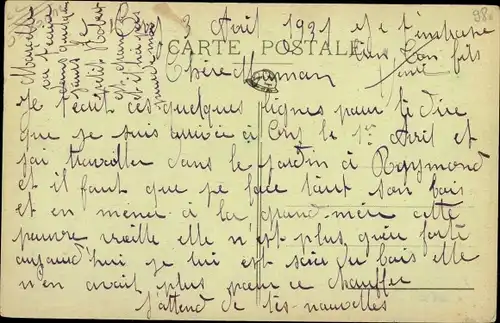 3 Avril 1931
et je t'embrasse
CARTE POSTALE
ton fils
Chère Maman
Je t'ecrit ces quelques lignes pour te dire
que je suis arrivée à le 1er Avril et
j'ai travailler dans le jardin à Raymond
et il faut que je face tout son bois
et en mener à la grand-mère cette
pauvre vieille elle n'est plus guère forte
aujourd'hui je lui est scier du bois elle
n'en avait plus pour ce chauffer
J'attend de tes nouvelles